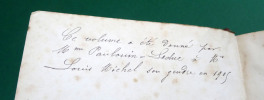 Ce volume a été donné par
Mme Paulouin-Leduc à Mr
Louis Michel son gendre en 1925